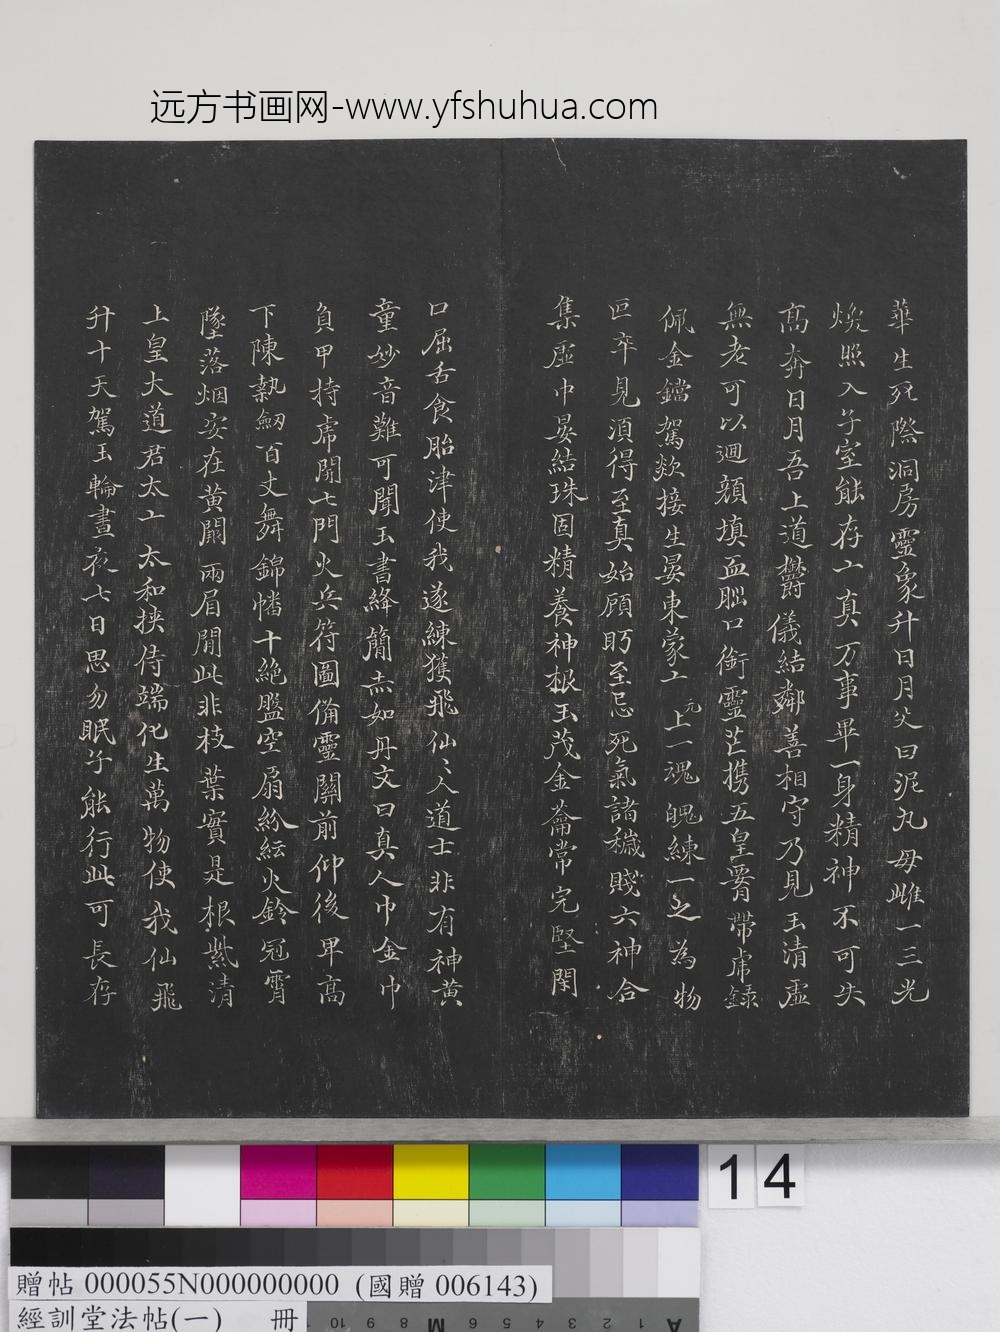 远方书画网-www.yfshuhua.com
華生死際洞房靈象升日月父曰泥丸母雌一三光
煥照入子室能存亠真万事畢一身精神不可失
高奔日月吾上道欝儀結鄰善相守乃見玉清虛
無老可以迴顔填血腦口銜靈芒携五皇署帶虎錄
佩金鐺駕欻接生晏東蒙亠元上一魂魄練一之為物
叵卒見湏得至真始顧眄至忌死氣諸穢賤六神合
集虛中晏結珠固精養神根玉茂金籥常完堅閑
口屈舌食胎津使我遂練獲飛仙〻人道士非有神黄
童妙音難可聞玉書絳簡赤如丹文曰真人巾金巾
負甲持席開七門火兵符圖俻靈關前仰後卑高
下陳執劒百丈舞錦幡十絶盤空扇紛紜火鈴冠霄
墜落烟安在黄闕兩眉間此非枝葉實是根紫清
上皇大道君太亠太和挾侍端化生萬物使我仙飛
升十天駕玉輪晝夜七日思勿眠子能行此可長存
14
贈帖 000055N000000000 (國贈 006143)
經訓堂法帖(一) 冊
A 1 2 3 4 5 6 M 8 9 10